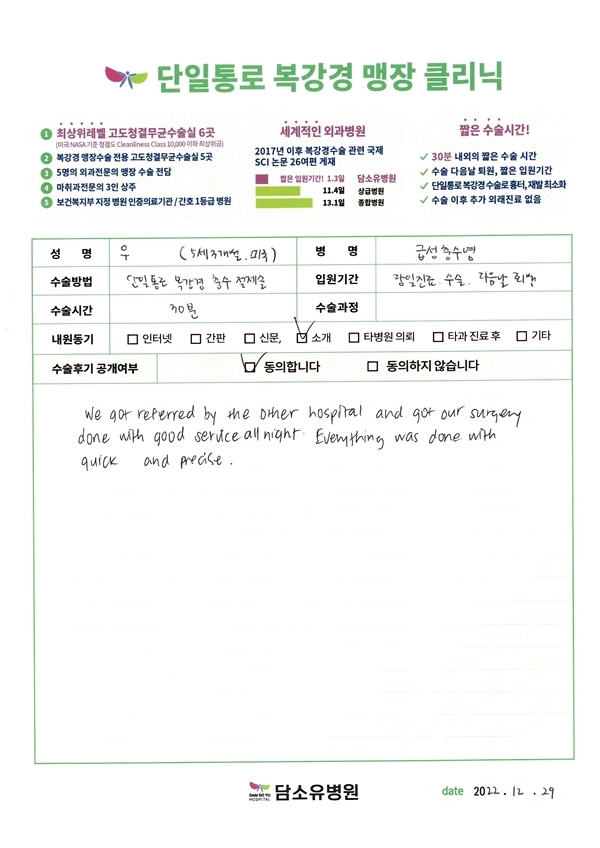 단일통로 복강경 맹장 클리닉
1 최상위레벨 고도청결무균수술실 6곳
(미국 NASA 기준 청결도 Cleanliness Class 10,000 이하 최상위급)
2 복강경 맹장수술 전용 고도청결무균수술실 5곳
3 5명의 외과전문의 맹장 수술 전담
4 마취과전문의 3인 상주
5 보건복지부 지정 병원 인증의료기관 / 간호 1등급 병원
세계적인 외과병원
2017년 이후 복강경수술 관련 국제
SCI 논문 26여편 게재
짧은 입원기간! 1.3일 담소유병원
11.4일 상급병원
13.1일 종합병원
짧은 수술시간!
✓ 30분 내외의 짧은 수술 시간
✓ 수술 다음날 퇴원, 짧은 입원기간
✓ 단일통로 복강경 수술로 흉터, 재발 최소화
✓ 수술 이후 추가 외래진료 없음
성 명 우 (5세 3개월. 미국) 병 명 급성 충수염
수술방법 단일통로 복강경 충수 절제술 입원기간 당일진료. 수술. 다음날 퇴원
수술시간 30분 수술과정
내원동기 □ 인터넷 □ 간판 □ 신문, ☑ 소개 □ 타병원 의뢰 □ 타과 진료 후 □ 기타
수술후기 공개여부 ☑ 동의합니다 □ 동의하지 않습니다
We got referred by the other hospital and got our surgery
done with good service all night. Everything was done with
quick and precise.
DAM SO YU
HOSPITAL
담소유병원
date 2022.12.29